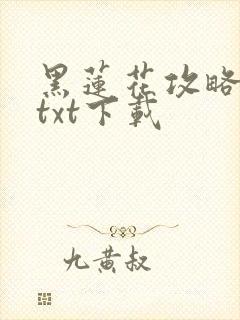 黑蓮花攻略
txt下載
九黄叔